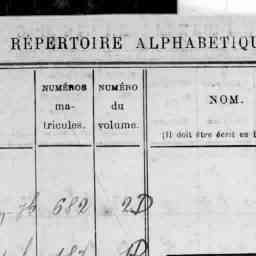 RÉPERTOIRE ALPHABETIQU
NUMÉROS
ma-
tricules.
NUMÉRO
du
volume.
NOM.
(Il doit être écrit en
682 2D